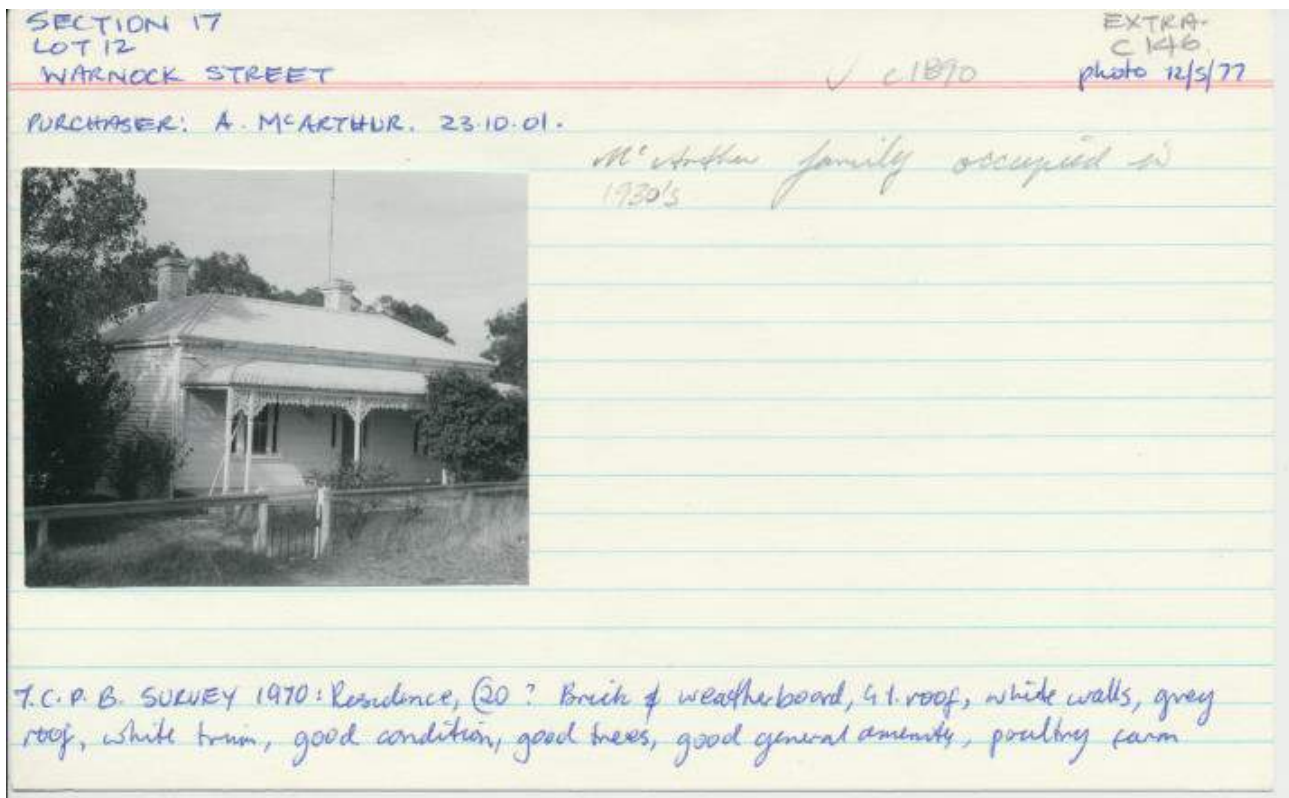 SECTION 17
LOT 12
WARNOCK STREET
EXTRA-
C 146
c1890
photo 12/5/77
PURCHASER: A. McARTHUR. 23.10.01.
McArthur family occupied in
1930's
T.C.P.B. SURVEY 1970: Residence, C20? Brick & weatherboard, G.I. roof, white walls, grey
roof, white trim, good condition, good trees, good general amenity, poultry farm